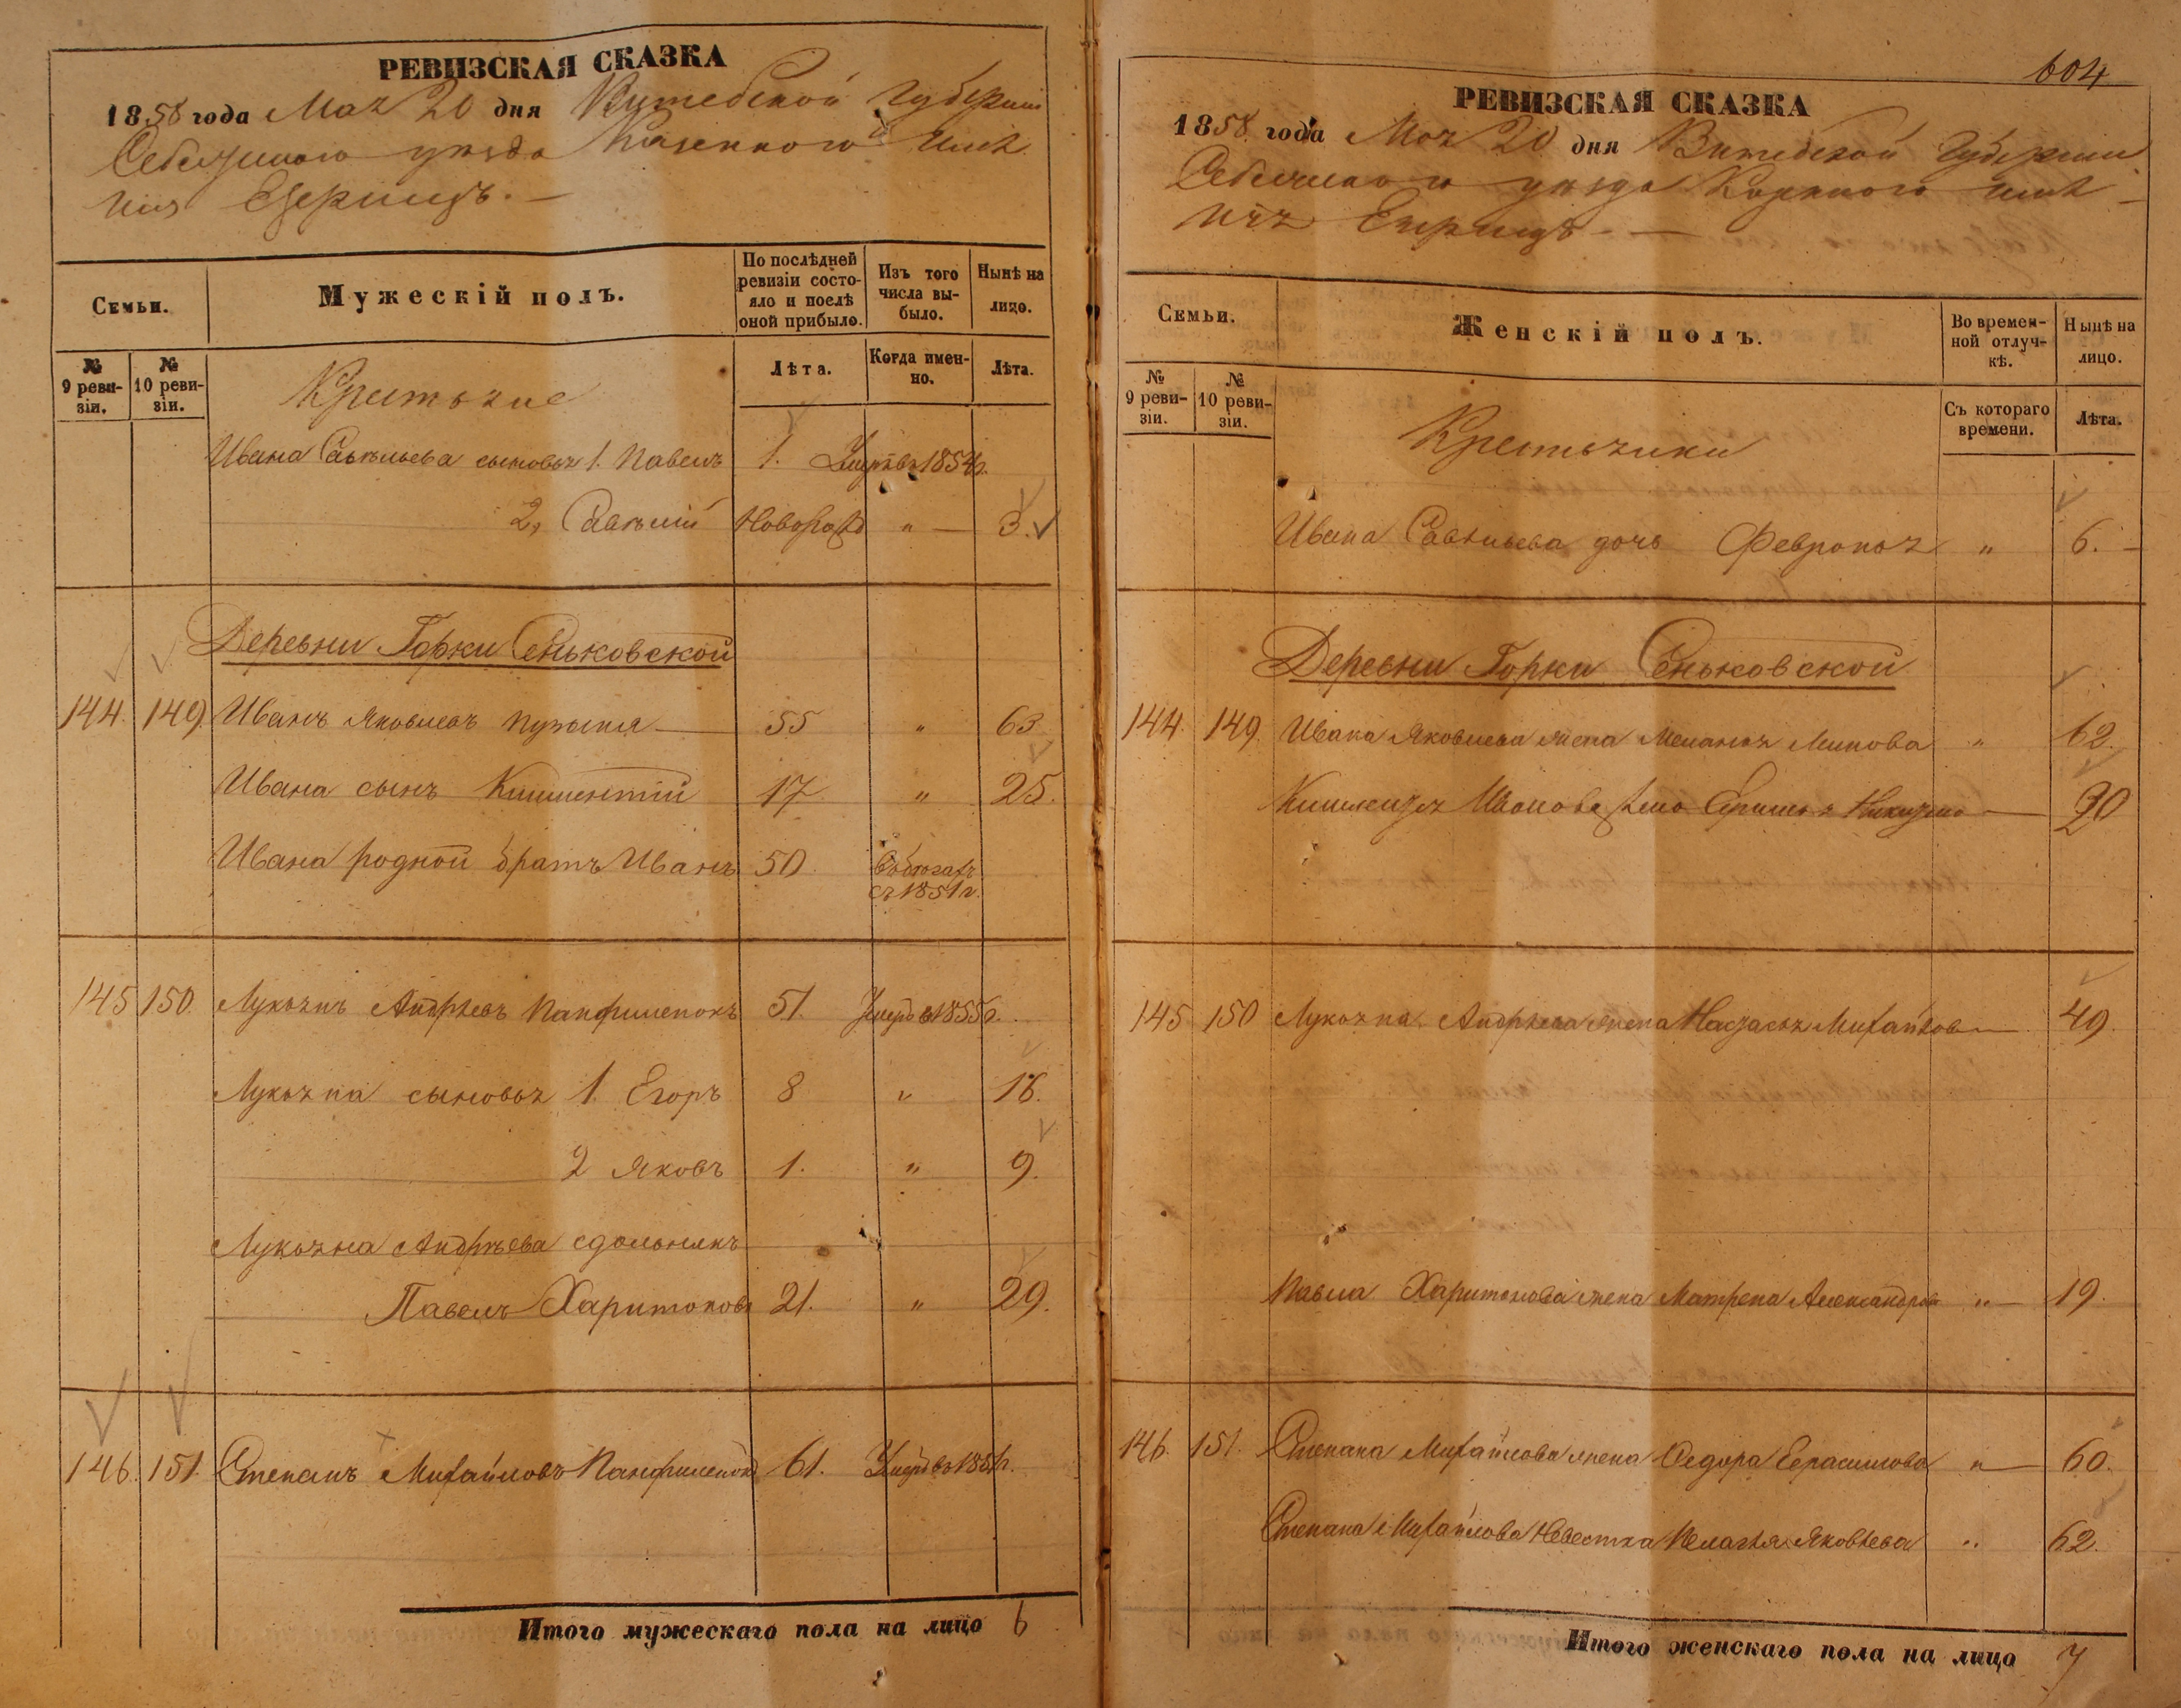 РЕВИЗСКАЯ СКАЗКА
1858 года Мая 20 дня Витебской Губернии
Себежскаго уѣзда Казеннаго имѣ
нія Езерищъ. —
Семьи.
Мужескій полъ.
По послѣдней ревизіи состояло и послѣ оной прибыло.
Изъ того числа выбыло.
Нынѣ на лицо.
№ 9 ревизіи.
№ 10 ревизіи.
Крестьяне
Лѣта.
Когда именно.
Лѣта.
Ивана Савельева сыновья 1. Павелъ 1. Умеръ въ 1854 г.
2, Савелій Новорожд " — 3.
Деревни Горки Сеньковской
144. 149. Иванъ Яковлевъ 55 " 63
Ивана сынъ Климентій 17 " 25.
Ивана родной братъ Иванъ 50
съ 1851 г.
145 150. Лукьянъ Андреевъ Панфиленокъ 51. Умеръ в 1855 г.
Лукьяна сыновья 1. Егоръ 8 " 16.
2 Яковъ 1. " 9.
Лукьяна Андреева здольникъ
Павелъ Харитоновъ 21. " 29.
146. 151. Степанъ Михайловъ Панфиленокъ 61. Умеръ въ г.
Итого мужескаго пола на лицо 6
604
РЕВИЗСКАЯ СКАЗКА
1858 года Мая 20 дня Витебской Губернии
Себежскаго уѣзда Казеннаго имѣ
нія Езерищъ — —
Семьи.
Женскій полъ.
Во временной отлучкѣ.
Нынѣ на лицо.
№ 9 ревизіи.
№ 10 ревизіи.
Крестьянки
Съ котораго времени.
Лѣта.
Ивана Савельева дочь Февронья " 6. —
Деревни Горки Сеньковской
144. 149. Ивана Яковлева жена Меланья " 62.
Иванова жена — 20
145 150 Лукьяна Андреева жена Настасья Михайлов — 49.
Павла Харитонова жена Матрена Александров " — 19.
146. 151. Степана Михайлова жена Федора Герасимова " — 60.
Степана Михайлова Невестка Пелагея Яковлева " 62.
Итого женскаго пола на лицо 7